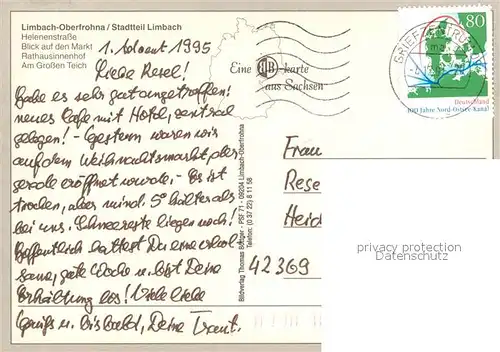 Limbach-Oberfrohna / Stadtteil Limbach
Helenenstraße
Blick auf den Markt
Rathausinnenhof
Am Großen Teich
1. Advent 1995
Liebe Resel!
Habe es sehr gut angetroffen!
neues Cafe mit Hotel, zentral
gelegen! - Gestern waren wir
auf dem Weihnachtsmarkt der
gerade eröffnet wurde. - Es ist
trocken, aber mind. 5° kälter als
bei uns. Schneereste liegen noch!
Hoffentlich hattest Du eine erhol-
same, gute Woche u. bist Deine
Erkältung los! Viele liebe
Grüße u. bis bald, Deine Traut.
Eine BB-karte
aus Sachsen
Bildverlag Thomas Böttger - PSF 71 - 09204 Limbach-Oberfrohna
Telefon: (0 37 22) 8 11 58
BRIEFZENTRUM
80
Deutschland
100 Jahre Nord-Ostsee-Kanal
Frau
Rese
Heid
42369
privacy protection
Datenschutz